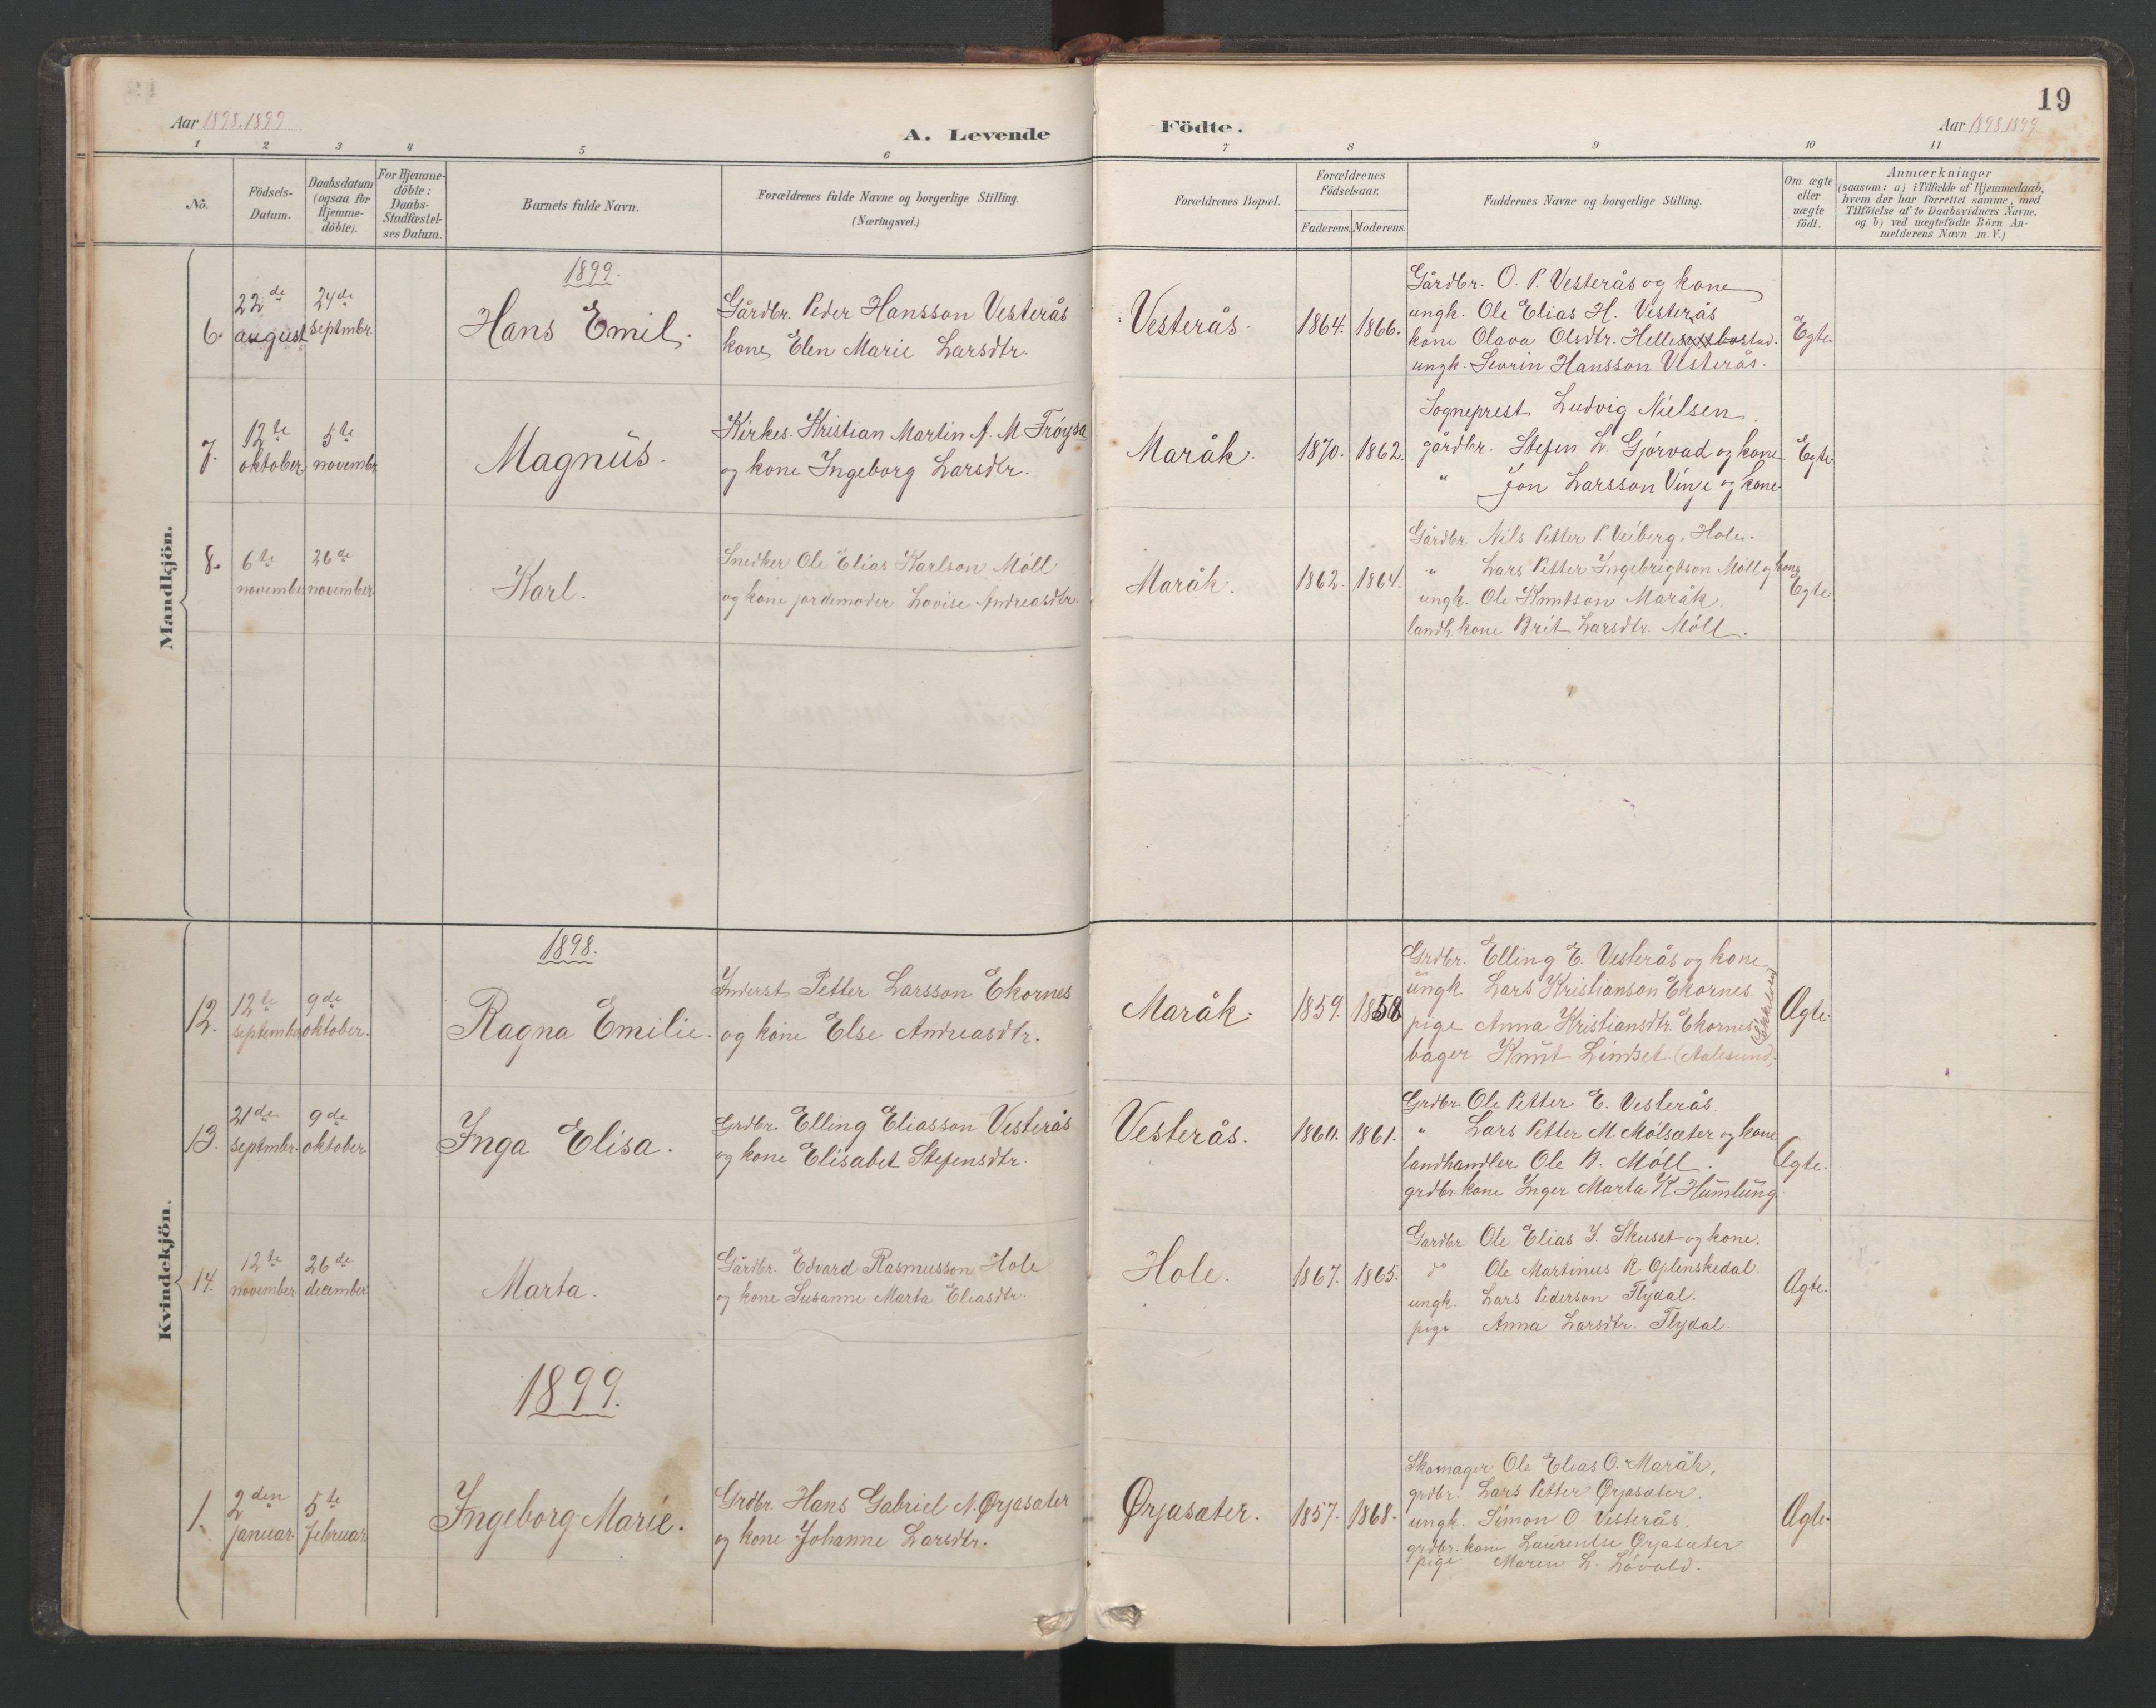 19
Aar 1898.1899
A. Levende Födte.
Aar 1898 1899
1 2 3 4 5 6 7 8 9 10 11
No.
Födsels-
Datum.
Daabsdatum
(ogsaa for
Hjemme-
döbte).
For Hjemme-
döbte:
Daabs-
Stadfæstel-
ses Datum.
Barnets fulde Navn.
Forældrenes fulde Navne og borgerlige Stilling.
(Næringsvei.)
Forældrenes Bopæl.
Forældrenes
Födselsaar.
Faderens. Moderens.
Faddernes Navne og borgerlige Stilling.
Om ægte
eller
uægte
födt.
Anmærkninger
(saasom: a) i Tilfælde af Hjemmedaab,
hvem der har forrettet samme, med
Tilföielse af to Daabsvidners Navne.
og b) ved uægtefödte Börn An-
melderens Navn m. V.)
Mandkjön.
1899.
6.
22de
august
24de
septmbr.
Hans Emil.
Gårdbr. Peder Hansson Vesterås
kone Elen Marie Larsdtr.
Vesterås.
1864. 1866.
Gårdbr. O. P. Vesterås og kone
ungk. Ole Elias H. Vesterås
kone Olava Olsdtr. Hellesyltbostad.
ungk. Sevrin Hansson Vesterås.
Egte.
7.
12te
oktober
5te
novembr
Magnus.
Kirkes. Kristian Martin A. M. Frøysa
og kone Ingeborg Larsdtr.
Maråk.
1870. 1862.
Sogneprest Ludvig Nielsen.
gårdbr. Stefen L. Gjørvad og kone
" Jon Larsson Vinje og kone
Egte.
8.
6te
november
26de
november
Karl.
Snedker Ole Elias Karlson Möll
og kone jordemoder Lovise Andreasdtr.
Maråk.
1862. 1864.
Gårdbr. Nils Petter P. Veiberg, Hole.
" Lars Petter Ingebrigtson Möll og kone
ungk. Ole Knutson Maråk.
landh. kone Brit Larsdtr. Möll.
Egte.
Kvindekjön.
1898.
12.
12te
septembr
9de
oktober.
Ragna Emilie.
Inderst Petter Larsson Ekornes
og kone Else Andreasdtr.
Maråk.
1859. 1858
Grdbr. Elling E. Vesterås og kone
ungk. Lars Kristianson Ekornes
pige Anna Kristiansdtr. Ekornes
bager Knut Limset (Aalesund)
Ægte.
13.
21de
septmbr.
9de
oktober.
Inga Elisa.
Grdbr. Elling Eliasson Vesterås
og kone Elisabet Stefensdtr.
Vesterås.
1860. 1861.
Grdbr. Ole Petter E. Vesterås.
" Lars Petter M. Mölsæter og kone
landhandler Ole B. Möll.
grdbr. kone Inger Marta K Humlung
Ægte.
14.
12te
november
26de
december
Marta.
Gårdbr. Edvard Rasmusson Hole
og kone Susanne Marta Eliasdtr.
Hole.
1867. 1865.
Gardbr. Ole Elias J. Skuset og kone.
do Ole Martinus R. Oplenskedal.
ungk. Lars Pederson Flydal.
pige Anna Larsdtr. Flydal.
Ægte.
1899.
1.
2den
januar.
5te
februar
Ingeborg Marie.
Grdbr. Hans Gabriel N. Ørjasæter
og kone Johanne Larsdtr.
Ørjasæter.
1857. 1868.
Skomager Ole Elias O. Maråk,
grdbr. Lars Petter Ørjasæter.
ungk. Simon O. Vesterås.
grdbr. kone Laurentse Ørjasæter
pige Maren L. Lövold.
Ægte.